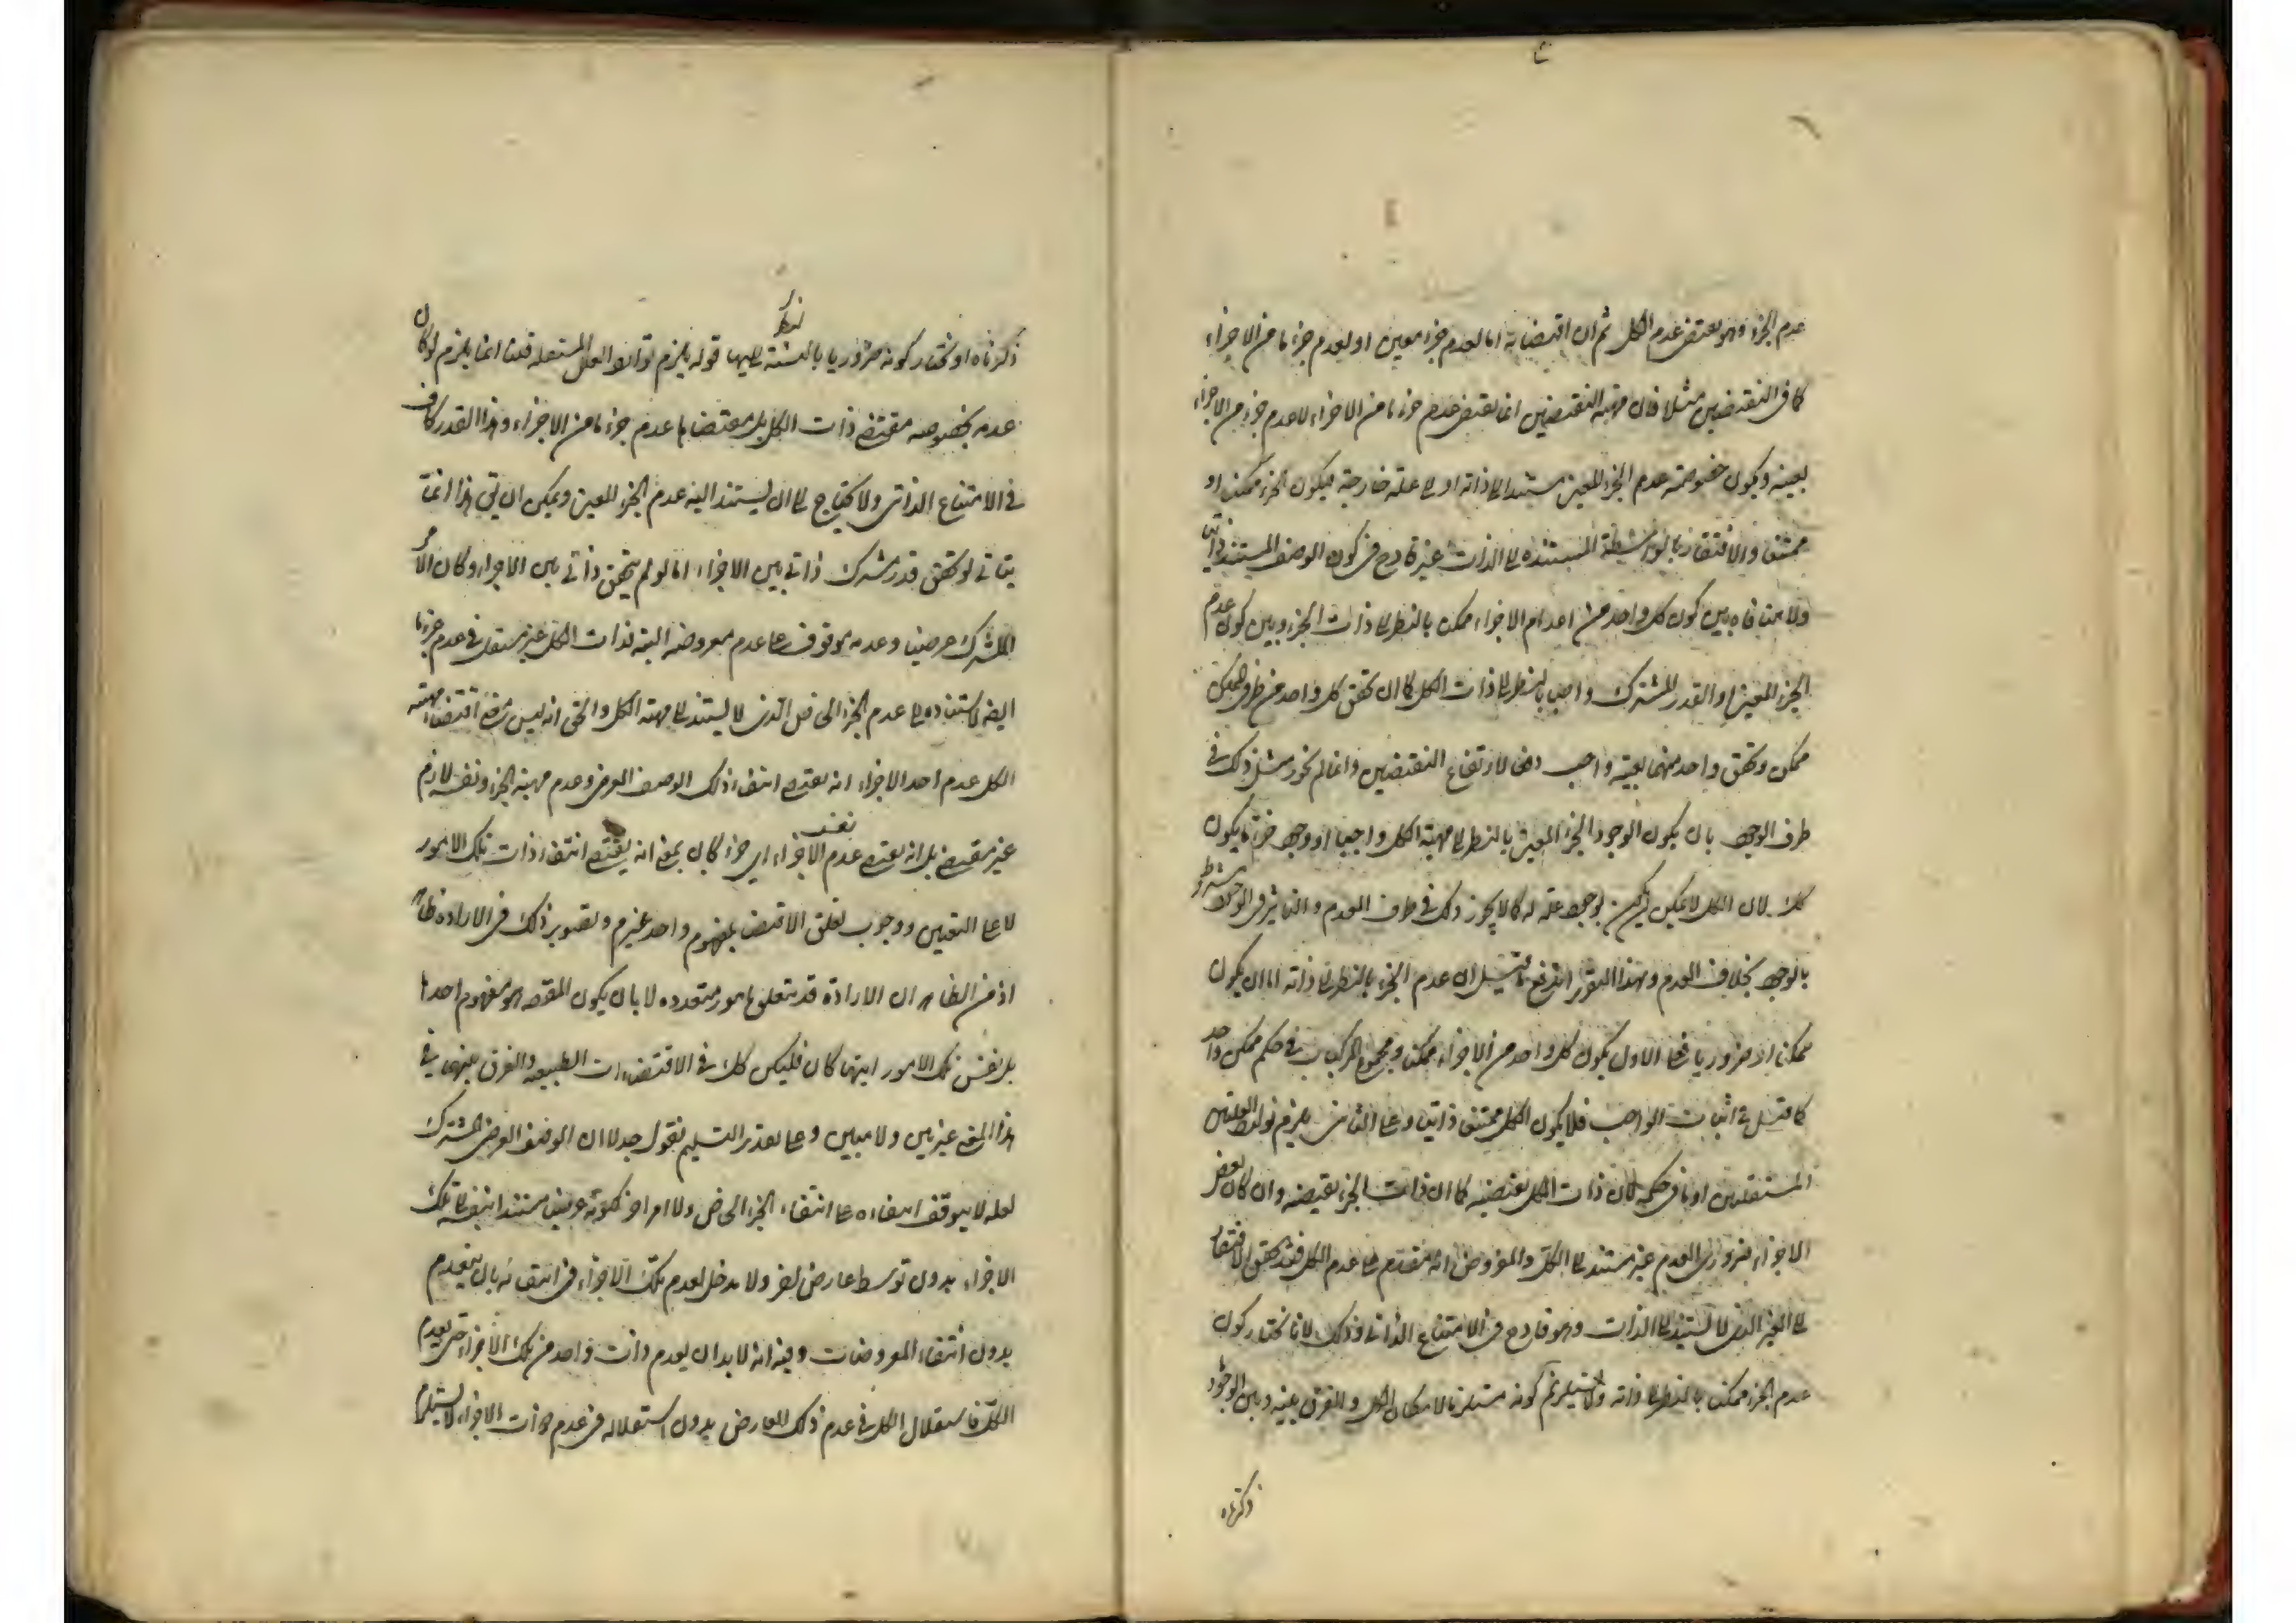 عدم الجزء وهو يقتضى عدم الكل ثم ان اقتضائه اما لعدم جزء معين او لعدم جزء ما من الاجزاء
كما فى النقيضين مثلا فان مهية النقيضين انما يقتضى عدم جزء ما من الاجزاء لا عدم جزء من الاجزاء
بعينه ويكون خصوصية عدم الجزء المعين مستندا الى ذاته او الى علة خارجية فيكون الجزء ممكنا او
ممتنعا والافتقار بالواسطة المستندة الى الذات غير قادح فى كون الوصف المستند ذاتيا
ولا منافاة بين كون كل واحد من اعدام الاجزاء ممكن بالنظر الى ذات الجزء وبين كون عدم
الجزء المعين او القدر المشترك واجبا بالنظر الى ذات الكل كما ان تحقق كل واحد من طرفى الممكن
ممكن وتحقق واحد منهما بعينه واجب دفعا لارتفاع النقيضين وانما لم يجوز مثل ذلك فى
طرف الوجود بان يكون الوجود الجزء المعين بالنظر الى مهية الكل واجبا او وجود جزء ما يكون
كك لان الكل لا يمكن ان يكون بوجوده علة له كما لا يجوز ذلك فى طرف العدم والتاثير فى الوجود مشروط
بالوجود بخلاف العدم وبهذا التقرير اندفع ما قيل ان عدم الجزء بالنظر الى ذاته اما ان يكون
ممكنا او ضروريا فعلى الاول يكون كل واحد من الاجزاء ممكنا ومجموع المركبات فى حكم ممكن واحد
كما قيل فى اثبات الواجب فلا يكون الكل ممتنعا ذاتيا وعلى الثانى يلزم توارد العلتين
المستقلتين او ما فى حكمه لان ذات الكل يقتضيه كما ان ذات الجزء يقتضيه وان كان بعض
الاجزاء ضرورى العدم غير مستند الى الكل والمفروض انه مقدم على عدم الكل فقد تحقق الافتقار
الى الغير الذى لا يستند الى الذات وهو قادح فى الامتناع الذاتى وذلك لانا نختار كون
عدم الجزء ممكنا بالنظر الى ذاته ولا يستلزم كونه مستلزما لامكان الكل والفرق بينه وبين الوجود
ذكرناه
ذكرناه او نختار كونه ضروريا بالنسبة اليها قوله يلزم توارد العلل المستقلة قلنا انما يلزم لو كان
عدمه بخصوصه مقتضى ذات الكل بل مقتضاها عدم جزء ما من الاجزاء وهذا القدر كاف
فى الامتناع الذاتى ولا يحتاج الى ان يستند اليه عدم الجزء المعين ويمكن ان يق هذا انما
يتاتى لو تحقق قدر مشترك ذاتى بين الاجزاء اما لو لم يتحقق ذاتى بين الاجزاء وكان الامر
المشترك عرضيا وعدمه موقوف على عدم معروضه البتة فذات الكل غير مستقل فى عدم جزء ما
ايضا لاستناده الى عدم الجزء الخاص الذى لا يستند الى مهية الكل والحق انه ليس معنى اقتضاء مهية
الكل عدم احد الاجزاء انه يقتضى انتفاء ذلك الوصف العرضى وعدم مهية الجزء ونفسه لازم
غير مقتضى بل انه يقتضى عدم نفس الاجزاء اى جزء كان بمعنى انه يقتضى انتفاء ذات تلك الامور
لا على التعيين ووجوب تعلق الاقتضاء بمفهوم واحد غير م وتصوير ذلك فى الارادة ظاهر
اذ من الظاهر ان الارادة قد يتعلق بامور متعددة لا بان يكون المقصود هو مفهوم احدها
بل نفس تلك الامور ايتها كان فليكن كك فى الاقتضاءات الطبيعية والفرق بينهما فى
هذا المعنى غير بين ولا مبين وعلى تقدير التسليم نقول جدلا ان الوصف العرضى المشترك
لعله لا يتوقف انتفاءه على انتفاء الجزء الخاص ولا امر اخر لكونه عرضيا مستندا بنفسه الى تلك
الاجزاء بدون توسط عارض اخر ولا مدخل لعدم تلك الاجزاء فى انتفائه بان ينعدم
بدون انتفاء المعروضات وفيه انه لا بد ان يعدم ذات واحد من تلك الاجزاء حتى يعدم
الكل فاستقلال الكل فى عدم ذلك العارض بدون استقلاله فى عدم ذات الاجزاء لا يستلزم